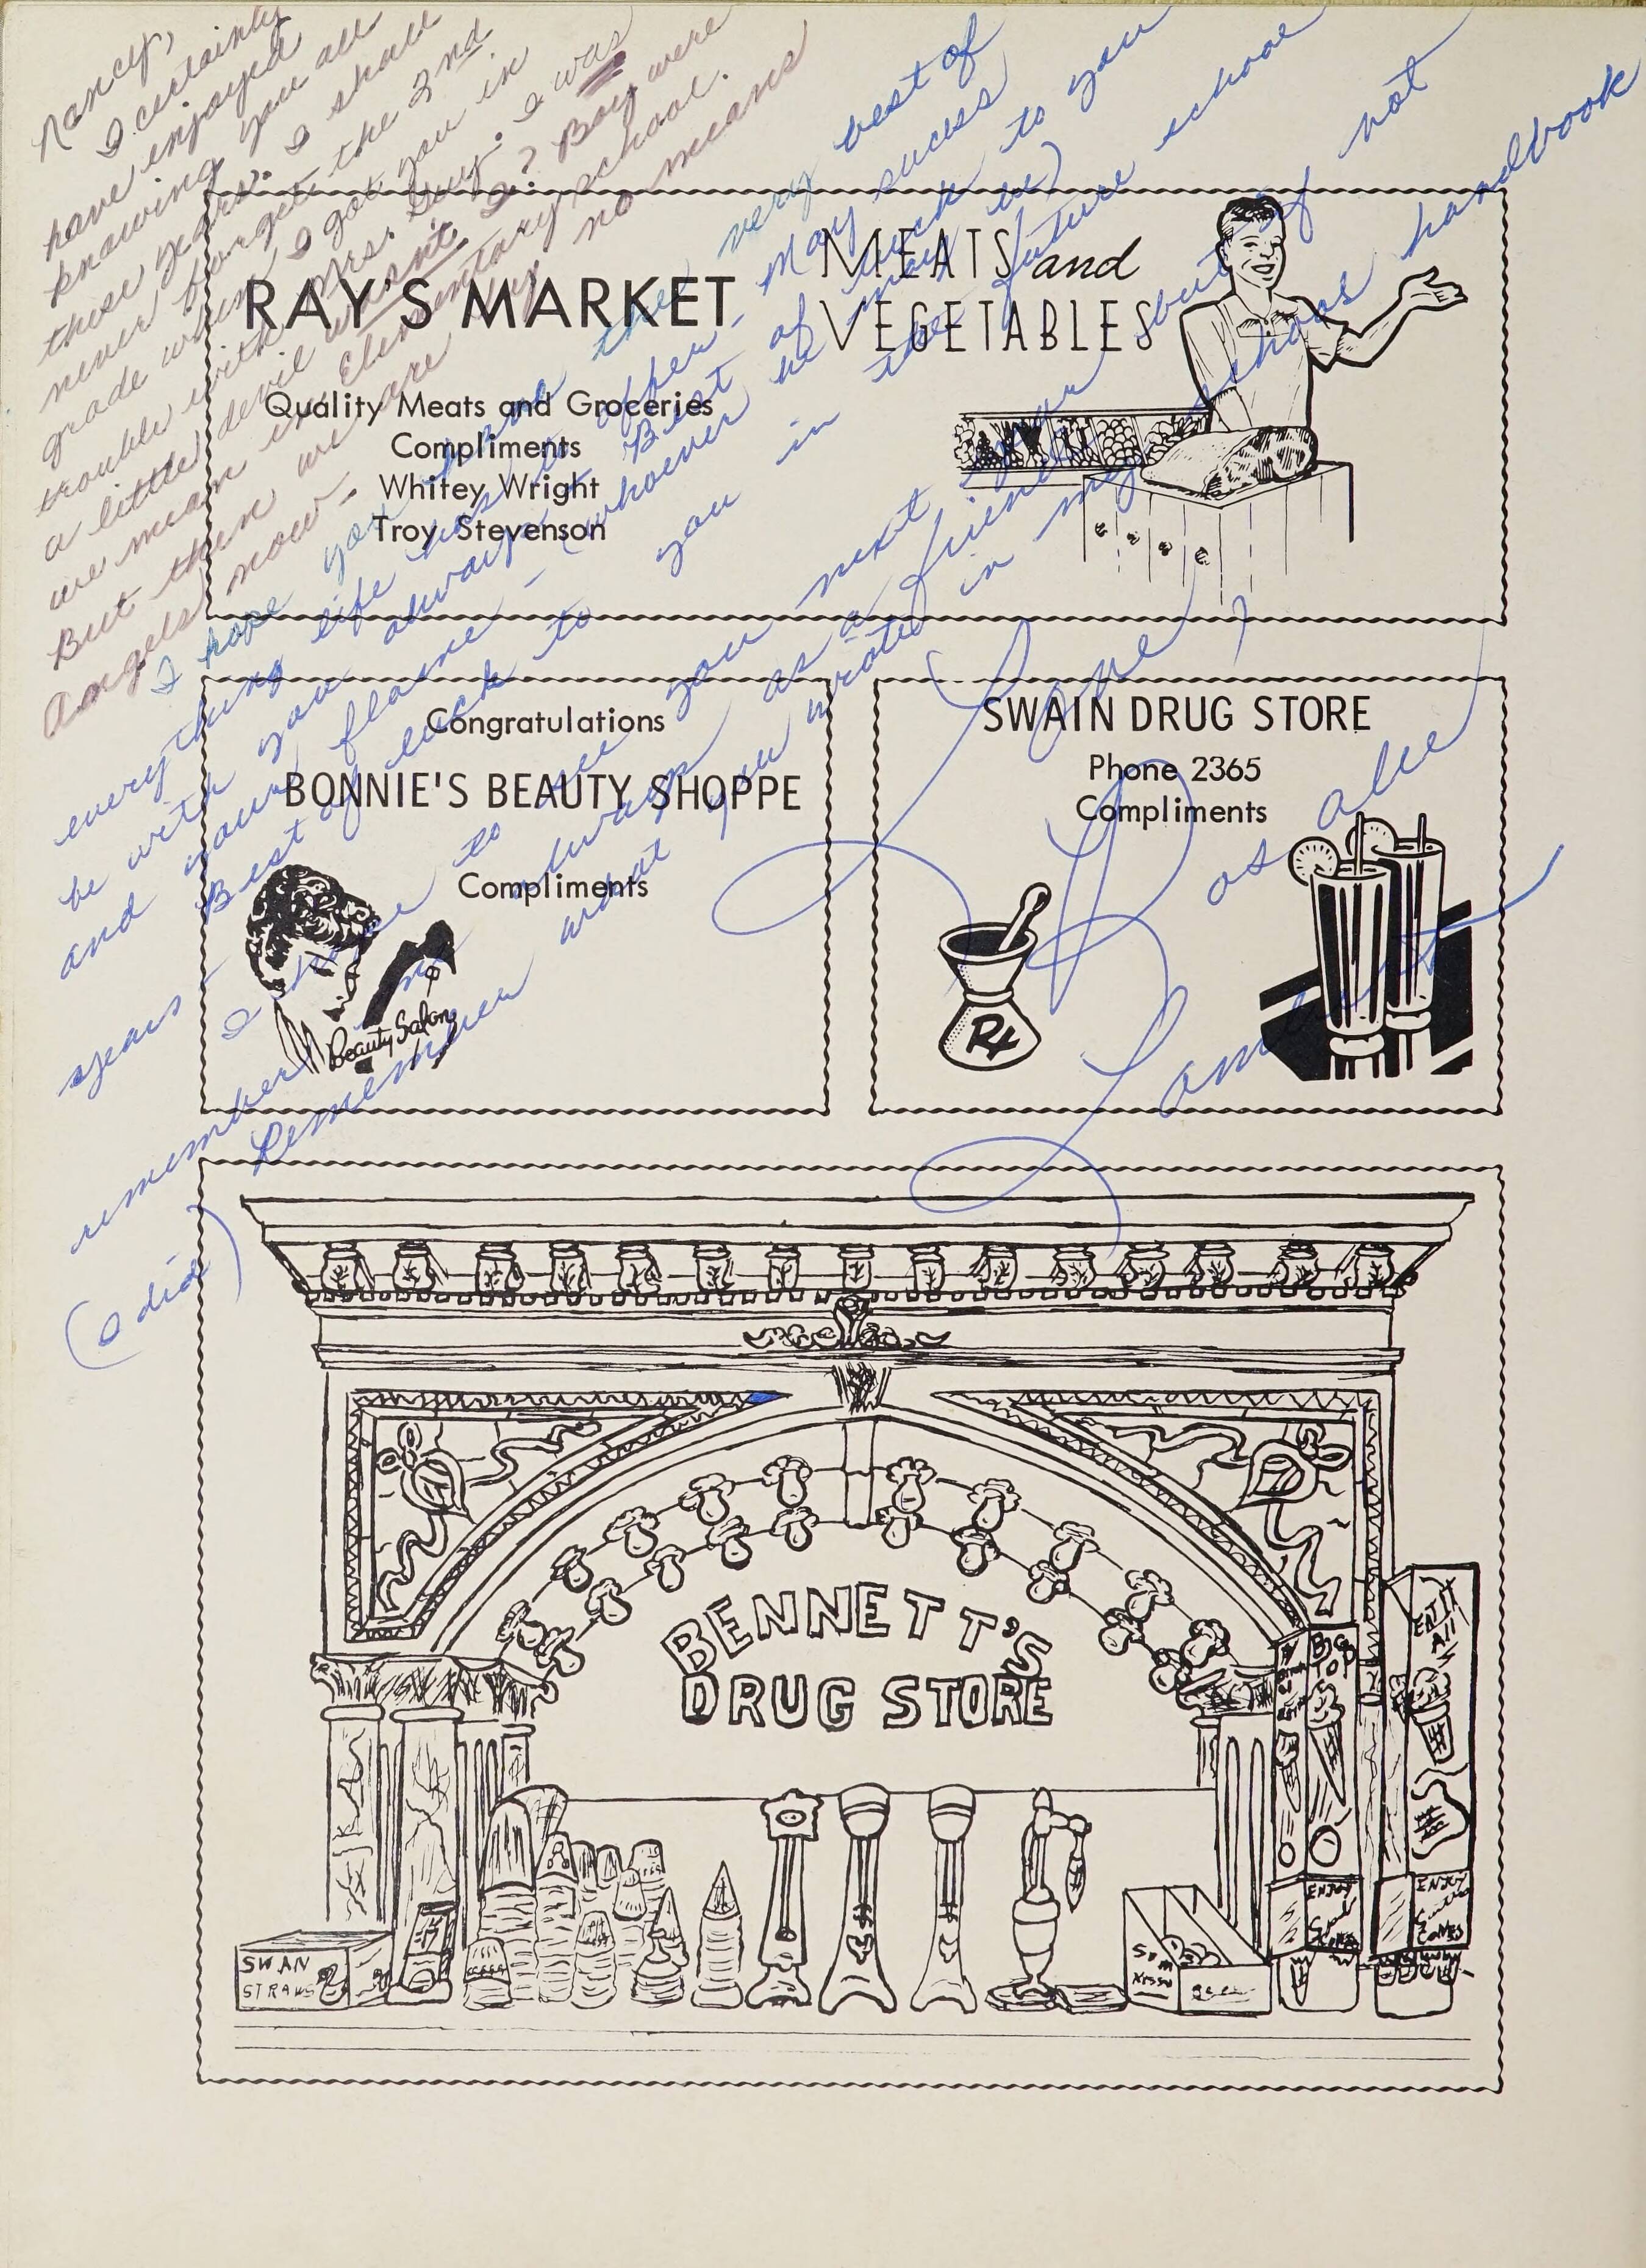 Nancy,
I certainly
have enjoyed
knowing you all
these years. I shall
never forget the 3rd
grade when I got you in
trouble with Mrs. Guy. I was
a little devil wasn't I? Boy were
we mean in Elementary school.
But then we are by no means
Angels now.
I hope you find the very best of
everything life has to offer - May success
be with you always. Best of luck to you
and your flame - (whoever he may be)
Best of luck to you in the future school
years -
I hope to see you next year but if not
remember me always as a friend
Remember what you wrote in my school handbook
(I did)
Love,
as ale
RAY'S MARKET
MEATS and
VEGETABLES
Quality Meats and Groceries
Compliments
Whitey Wright
Troy Stevenson
Congratulations
BONNIE'S BEAUTY SHOPPE
Compliments
Beauty Salon
SWAIN DRUG STORE
Phone 2365
Compliments
Rx
BENNETT'S
DRUG STORE
BIG
TOP
EAT IT
All
ENJOY
ENJOY
CONES
SWAN
STRAWS